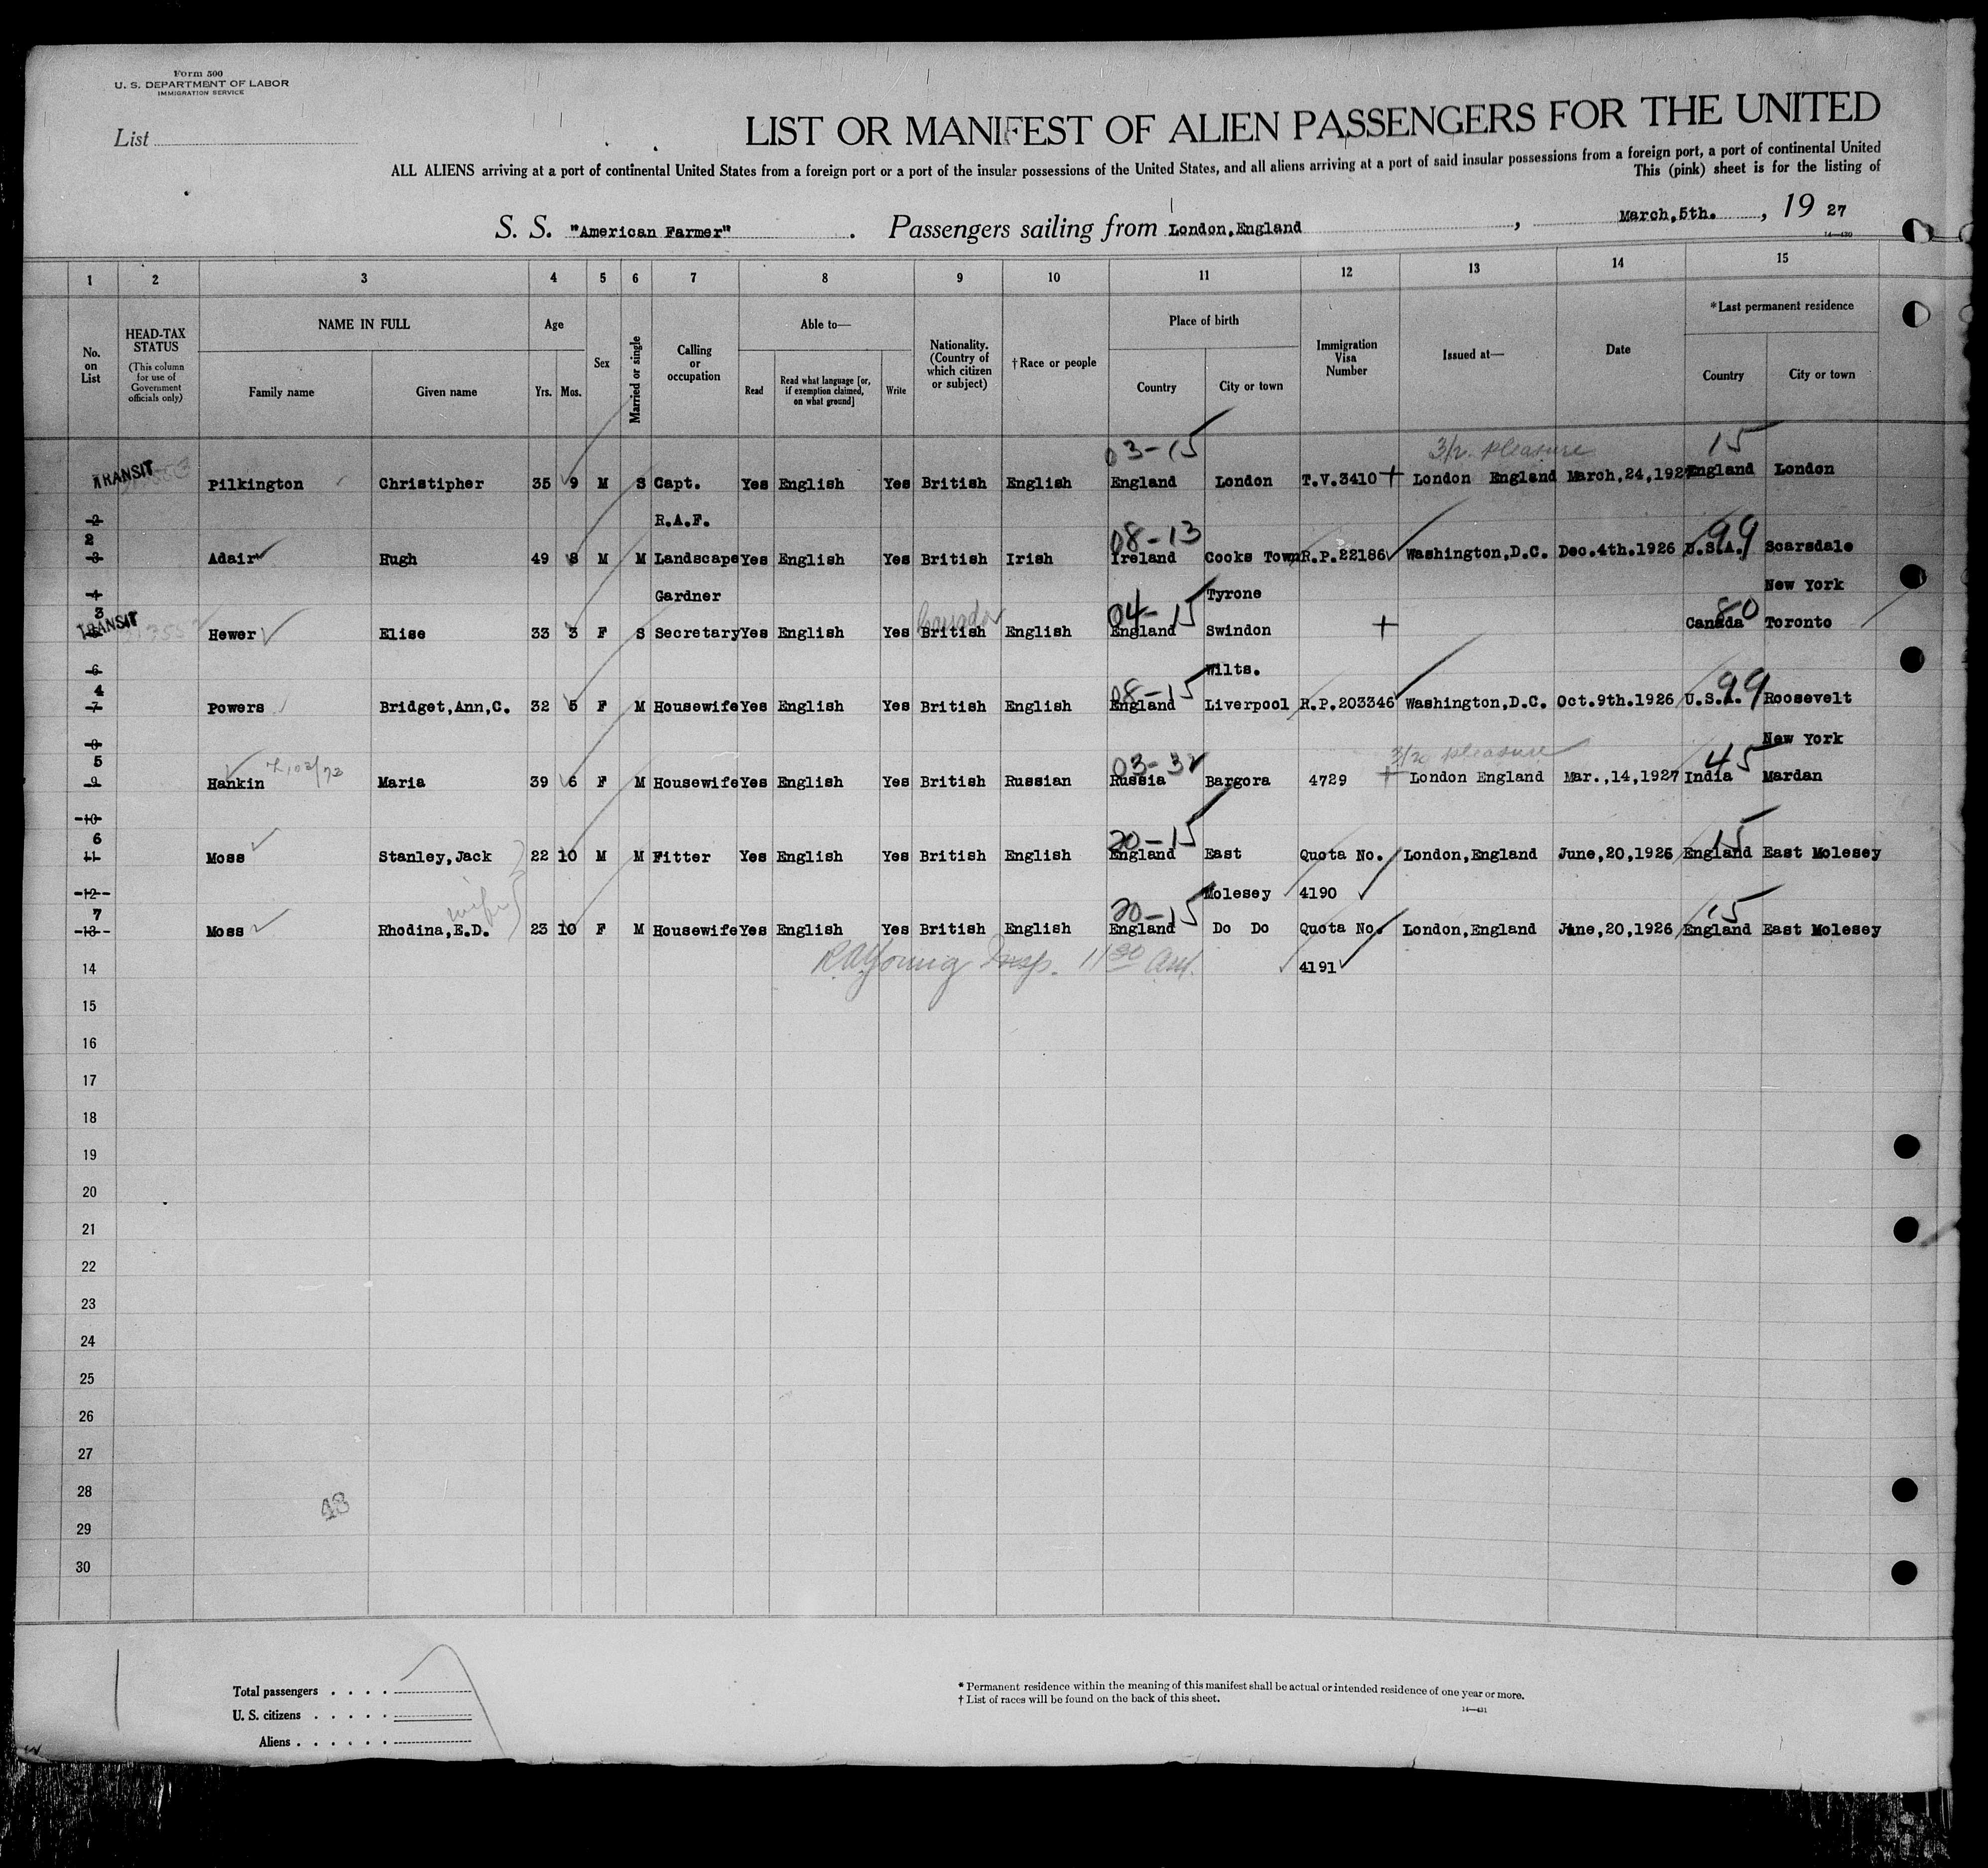 Form 500
U. S. DEPARTMENT OF LABOR
IMMIGRATION SERVICE
List
LIST OR MANIFEST OF ALIEN PASSENGERS FOR THE UNITED
ALL ALIENS arriving at a port of continental United States from a foreign port or a port of the insular possessions of the United States, and all aliens arriving at a port of said insular possessions from a foreign port, a port of continental United
This (pink) sheet is for the listing of
S. S. "American Farmer" . Passengers sailing from London,England , March,5th. , 19 27
14—430
1 2 3 4 5 6 7 8 9 10 11 12 13 14 15
No. on List
HEAD-TAX STATUS
(This column for use of Government officials only)
NAME IN FULL
Family name Given name
Age
Yrs. Mos.
Sex
Married or single
Calling or occupation
Able to—
Read
Read what language [or, if exemption claimed, on what ground]
Write
Nationality. (Country of which citizen or subject)
†Race or people
Place of birth
Country City or town
Immigration Visa Number
Issued at—
Date
*Last permanent residence
Country City or town
03-15 3/2 pleasure 15
TRANSIT Pilkington Christipher 35 9 M S Capt. Yes English Yes British English England London T.V.3410 London England March,24,1927 England London
2 R.A.F.
08-13 99
2 3 Adair Hugh 49 8 M M Landscape Yes English Yes British Irish Ireland Cooks Town R.P.22186 Washington,D.C. Dec.4th.1926 U.S.A. Scarsdale
4 Gardner Tyrone New York
Canada 04-15 80
3 TRANSIT Hewer Elise 33 3 F S Secretary Yes English Yes British English England Swindon Canada Toronto
6 Wilts.
08-15 99
4 7 Powers Bridget,Ann,C. 32 5 F M Housewife Yes English Yes British English England Liverpool R.P.203346 Washington,D.C. Oct.9th.1926 U.S.A. Roosevelt
8 New York
03-32 3/2 pleasure 45
5 9 Hankin Maria 39 6 F M Housewife Yes English Yes British Russian Russia Bargora 4729 London England Mar.,14,1927 India Mardan
10
20-15 15
6 11 Moss Stanley,Jack 22 10 M M Fitter Yes English Yes British English England East Quota No. London,England June,20,1926 England East Molesey
12 Molesey 4190
wife 20-15 15
7 13 Moss Rhodina,E.D. 23 10 F M Housewife Yes English Yes British English England Do Do Quota No. London,England June,20,1926 England East Molesey
14 4191
Young Insp. 11 30 am.
15
16
17
18
19
20
21
22
23
24
25
26
27
28
48
29
30
Total passengers
U. S. citizens
Aliens
* Permanent residence within the meaning of this manifest shall be actual or intended residence of one year or more.
† List of races will be found on the back of this sheet.
14—431